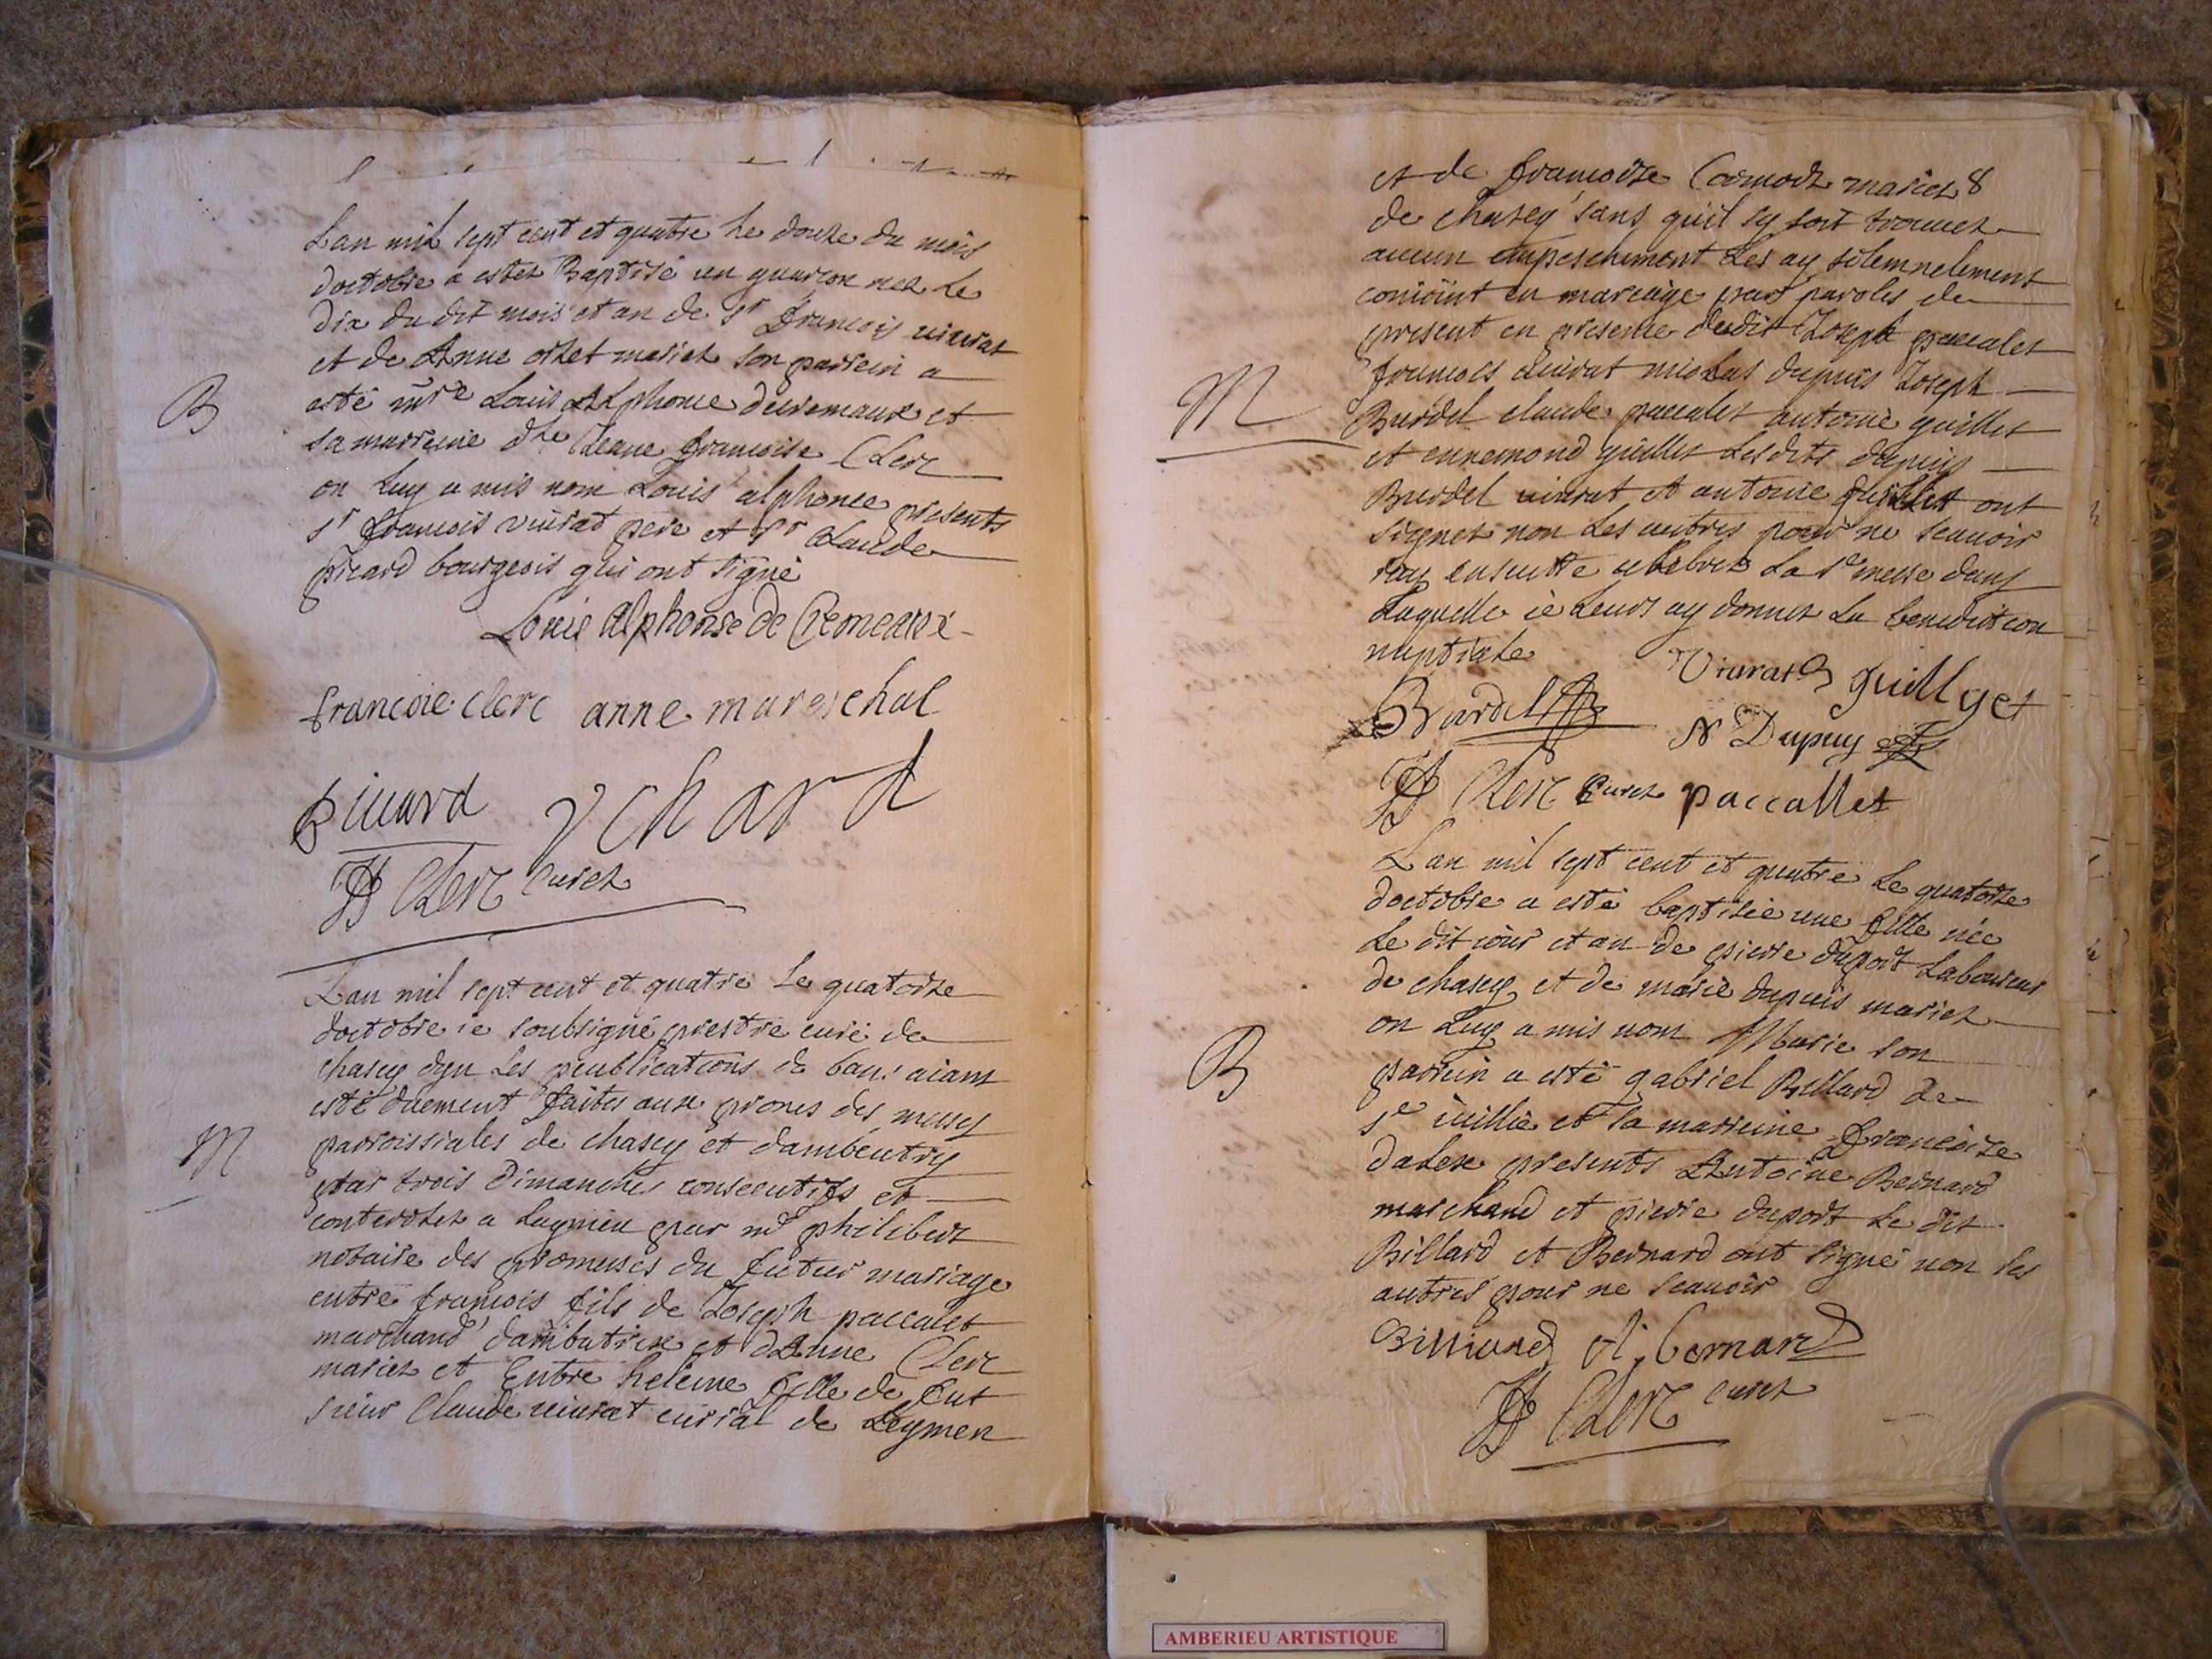 Lan mil sept cent et quatre le douze du mois
doctobre a estez Baptisé un guarcon nez le
dix du dit mois et an de sr francois viurat
et de Anne ortet mariez son parrein a
B
esté mre Louis Alphonce decremaux et
sa marreine dlle Jeane francoise Clerc
on luy a mis nom Louis alphonce presents
sr francois viurat pere et sr Claude
picard bourgeois qui ont signé
Louis Alphonse de Cremeaux
francoie clerc anne mareschal
Picard
Clerc curez
Lan mil sept cent et quatre le quatorze
doctobre ie soubsigné prestre curé de
chasey dyn les publications de bans aiant
esté duement faites aux prones des messes
M
parroissiales de chasey et dambeutry
par trois dimanches consecutifs et
controlez a lagnieu par me philibert
notaire des promesses du futur mariage
entre francois fils de Joseph paccalet
marchand dambutrix et dAnne Clerc
mariez et Entre heleine fille de feut
sieur Claude viurat curial de Leymen
et de francoise Cormorz mariez
de chasey sans quil sy soit trouuez
aucun empeschement les ay solemnelement
conioint en mariage par paroles de
present en presence dudit Joseph paccalet
M
francois viurat nicolas dupuis Joseph
Burdel claude paccalet antoine guillet
et ennemond guillet lesdits dupuis
Burdel viurat et antoine guillet ont
signez non les autres pour ne scauoir
iay ensuitte celebrez la se messe dans
laquelle ie leurs ay donnez la benediction
nuptiale
Viurat guillget
Burdel N Dupuy
Clerc Curez paccallet
Lan mil sept cent et quatre le quatorze
doctobre a esté baptisée une fille née
le dit iour et an de pierre duport laboureur
de chasey et de marie dupuis mariez
on luy a mis nom Marie son
B
parrein a esté gabriel Billard de
se iullie et sa marreine francoise
dalex presents Antoine Bernard
marchand et pierre duport le dit
Billard et Bernard ont signé non les
autres pour ne scauoir
Billiard A. bernard
Clerc curez
AMBERIEU ARTISTIQUE